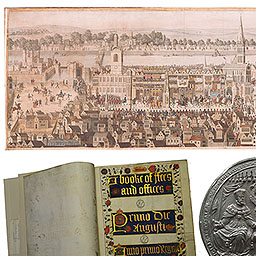 A booke of ffees
and offices
Primo Die
Augusti
Anno primo Regni